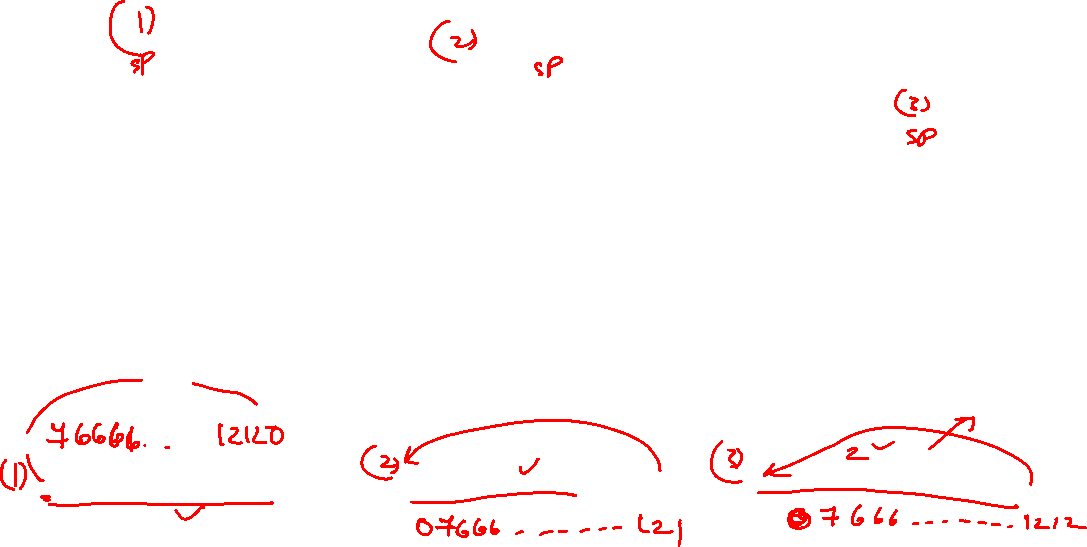 (1)
SP
(2)
SP
(3)
SP
76666... 12120
(1)
(2)
07666 ........ 121
(3)
2
07666 ........ 1212